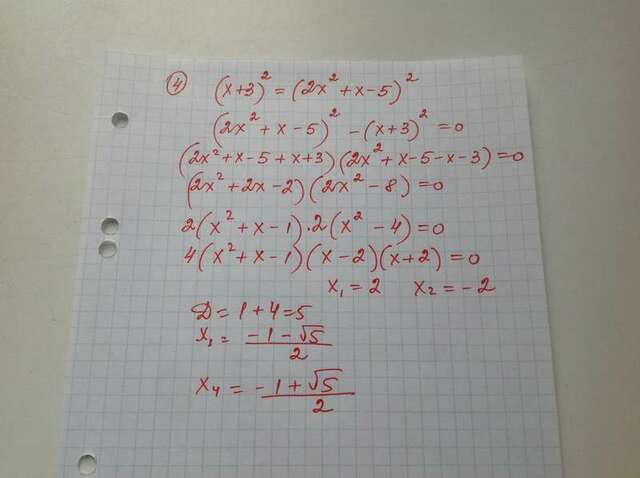 ④ (x+3)² = (2x² + x - 5)²
(2x² + x - 5)² - (x+3)² = 0
(2x² + x - 5 + x + 3)(2x² + x - 5 - x - 3) = 0
(2x² + 2x - 2)(2x² - 8) = 0
2(x² + x - 1) · 2(x² - 4) = 0
4(x² + x - 1)(x - 2)(x + 2) = 0
x₁ = 2 x₂ = -2
D = 1 + 4 = 5
x₁ = (-1 - √5)/2
x₄ = (-1 + √5)/2